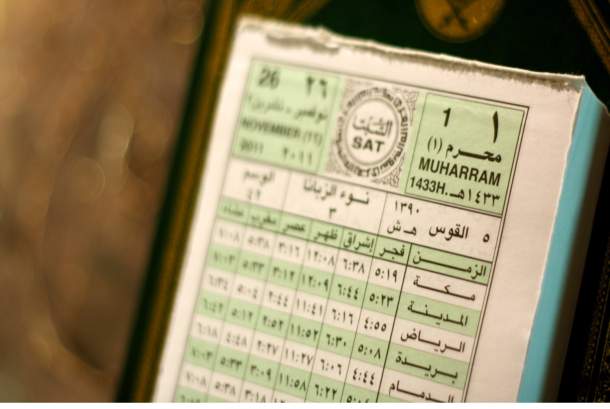 26 ٢٦
نوفمبر - تشرين٢
NOVEMBER (11)
2011 ٢٠١١
السبت
SAT
1 ١
محرم (١)
MUHARRAM
1433H. ١٤٣٣هـ
الوسم
نوء الزبانا ٣
١٣٩٠ هـ ش
٥ القوس
الزمن فجر إشراق ظهر عصر مغرب عشاء
مكة ٥:١٩ ٦:٣٨ ١٢:٠٨ ٣:١٦ ٥:٣٨ ٧:٠٨
المدينة ٥:٢٣ ٦:٤٤ ١٢:٠٩ ٣:١٢ ٥:٣٣ ٧:٠٣
الرياض ٤:٥٥ ٦:١٦ ١١:٤١ ٢:٤٤ ٥:٠٤ ٦:٣٤
بريدة ٥:٠٨ ٦:٣٠ ١١:٥٢ ٢:٥٢ ٥:١٢ ٦:٤٢
الدمام ٤:٤٤ ٦:٠٦ ١١:٢٧ ٢:٢٧ ٤:٤٨ ٦:١٨